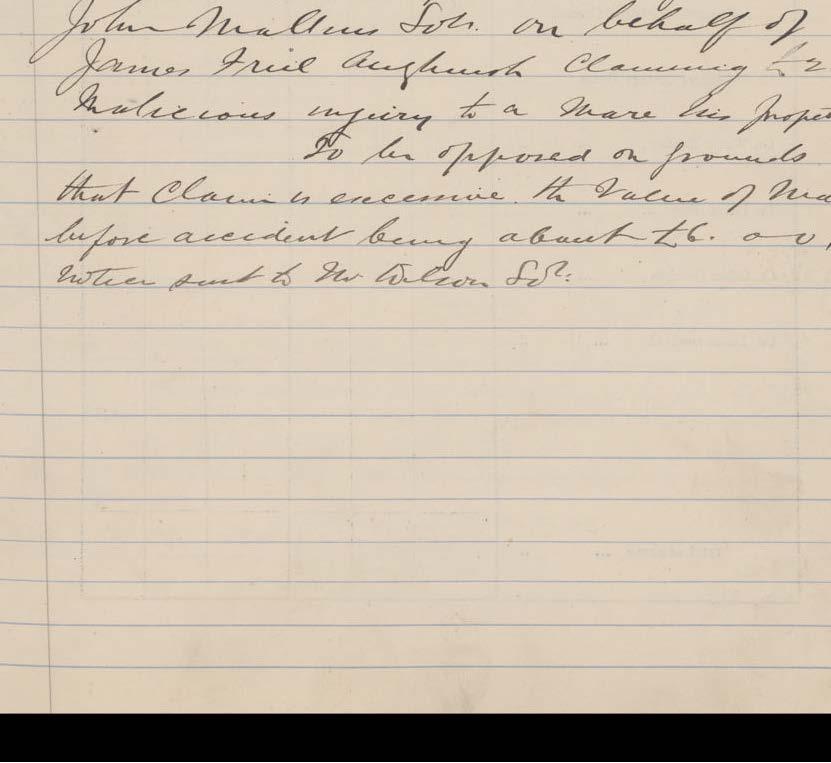 John Mallins Solr. on behalf of
James Friel Aughnish Claiming £2
Malicious injury to a Mare his prope
To be opposed on grounds
that Claim is excessive. the Value of Ma
before accident being about £6. o o,
notice sent to Mr Wilson Solr: